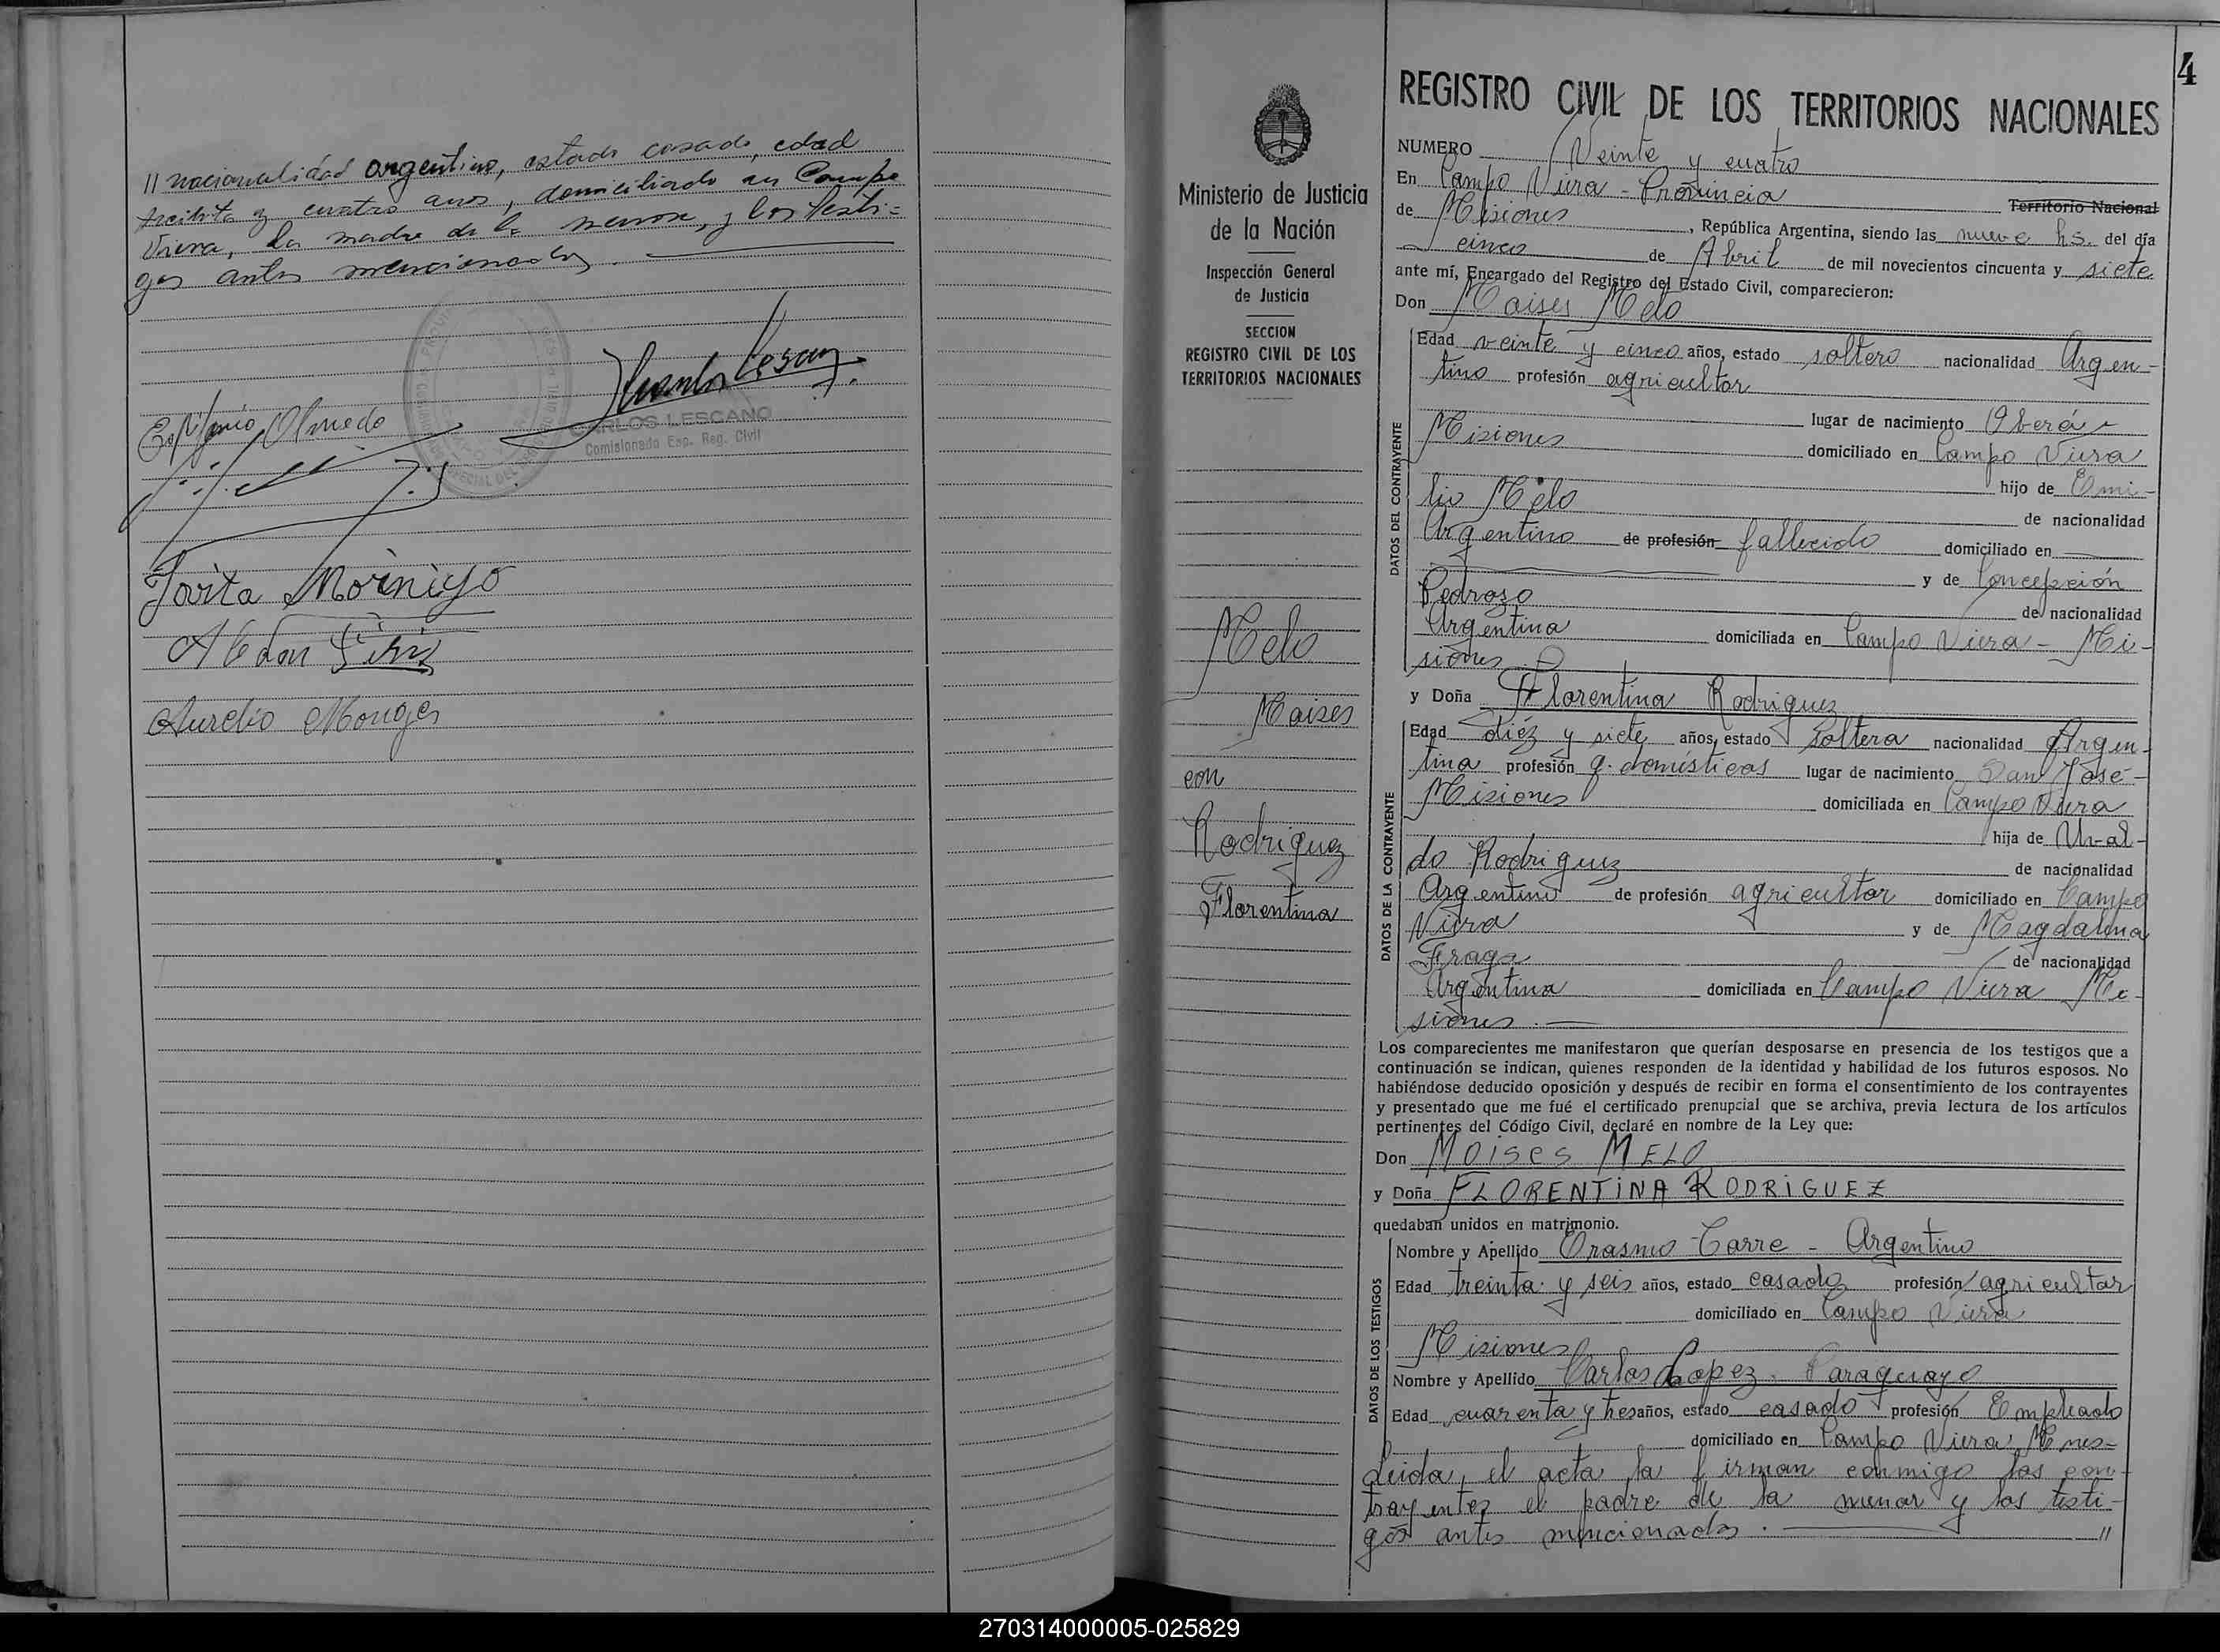 // nacionalidad argentino, estado casado, edad
treinta y cuatro años, domiciliado en Campo
Viera, la madre de la menor, y los testi=
gos antes mencionados.
CARLOS LESCANO
Comisionado Esp. Reg. Civil
Olmedo
Morinigo
Abdon
Aurelio Monges
4
Ministerio de Justicia
de la Nación
Inspección General
de Justicia
SECCION
REGISTRO CIVIL DE LOS
TERRITORIOS NACIONALES
Melo
Moises
con
Rodriguez
Florentina
REGISTRO CIVIL DE LOS TERRITORIOS NACIONALES
NUMERO Veinte y cuatro
En Campo Viera - Provincia Territorio Nacional
de Misiones, República Argentina, siendo las nueve hs. del día
cinco de Abril de mil novecientos cincuenta y siete
ante mí, Encargado del Registro del Estado Civil, comparecieron:
Don Moises Melo
DATOS DEL CONTRAYENTE
Edad veinte y cinco años, estado soltero nacionalidad Argen-
tino profesión agricultor
lugar de nacimiento Oberá -
Misiones domiciliado en Campo Viera
hijo de Emi-
lio Melo de nacionalidad
Argentino de profesión fallecido domiciliado en
y de Concepción
Pedrozo de nacionalidad
Argentina domiciliada en Campo Viera - Mi-
siones
y Doña Florentina Rodriguez
DATOS DE LA CONTRAYENTE
Edad diéz y siete años, estado soltera nacionalidad Argen-
tina profesión q. domésticos lugar de nacimiento San José -
Misiones domiciliada en Campo Viera
hija de Ubal-
do Rodriguez de nacionalidad
Argentino de profesión agricultor domiciliado en Campo
Viera y de Magdalena
Fraga de nacionalidad
Argentina domiciliada en Campo Viera Mi-
siones.
Los comparecientes me manifestaron que querían desposarse en presencia de los testigos que a
continuación se indican, quienes responden de la identidad y habilidad de los futuros esposos. No
habiéndose deducido oposición y después de recibir en forma el consentimiento de los contrayentes
y presentado que me fué el certificado prenupcial que se archiva, previa lectura de los artículos
pertinentes del Código Civil, declaré en nombre de la Ley que:
Don MOISES MELO
y Doña FLORENTINA RODRIGUEZ
quedaban unidos en matrimonio.
DATOS DE LOS TESTIGOS
Nombre y Apellido Erasmo Carre - Argentino
Edad treinta y seis años, estado casado profesión agricultor
domiciliado en Campo Viera
Misiones
Nombre y Apellido Carlos Lopez - Paraguayo
Edad cuarenta y tres años, estado casado profesión Empleado
domiciliado en Campo Viera Mnes=
Leida, el acta la firman conmigo los con-
trayentes el padre de la menor y los testi-
gos antes mencionados. //
270314000005-025829